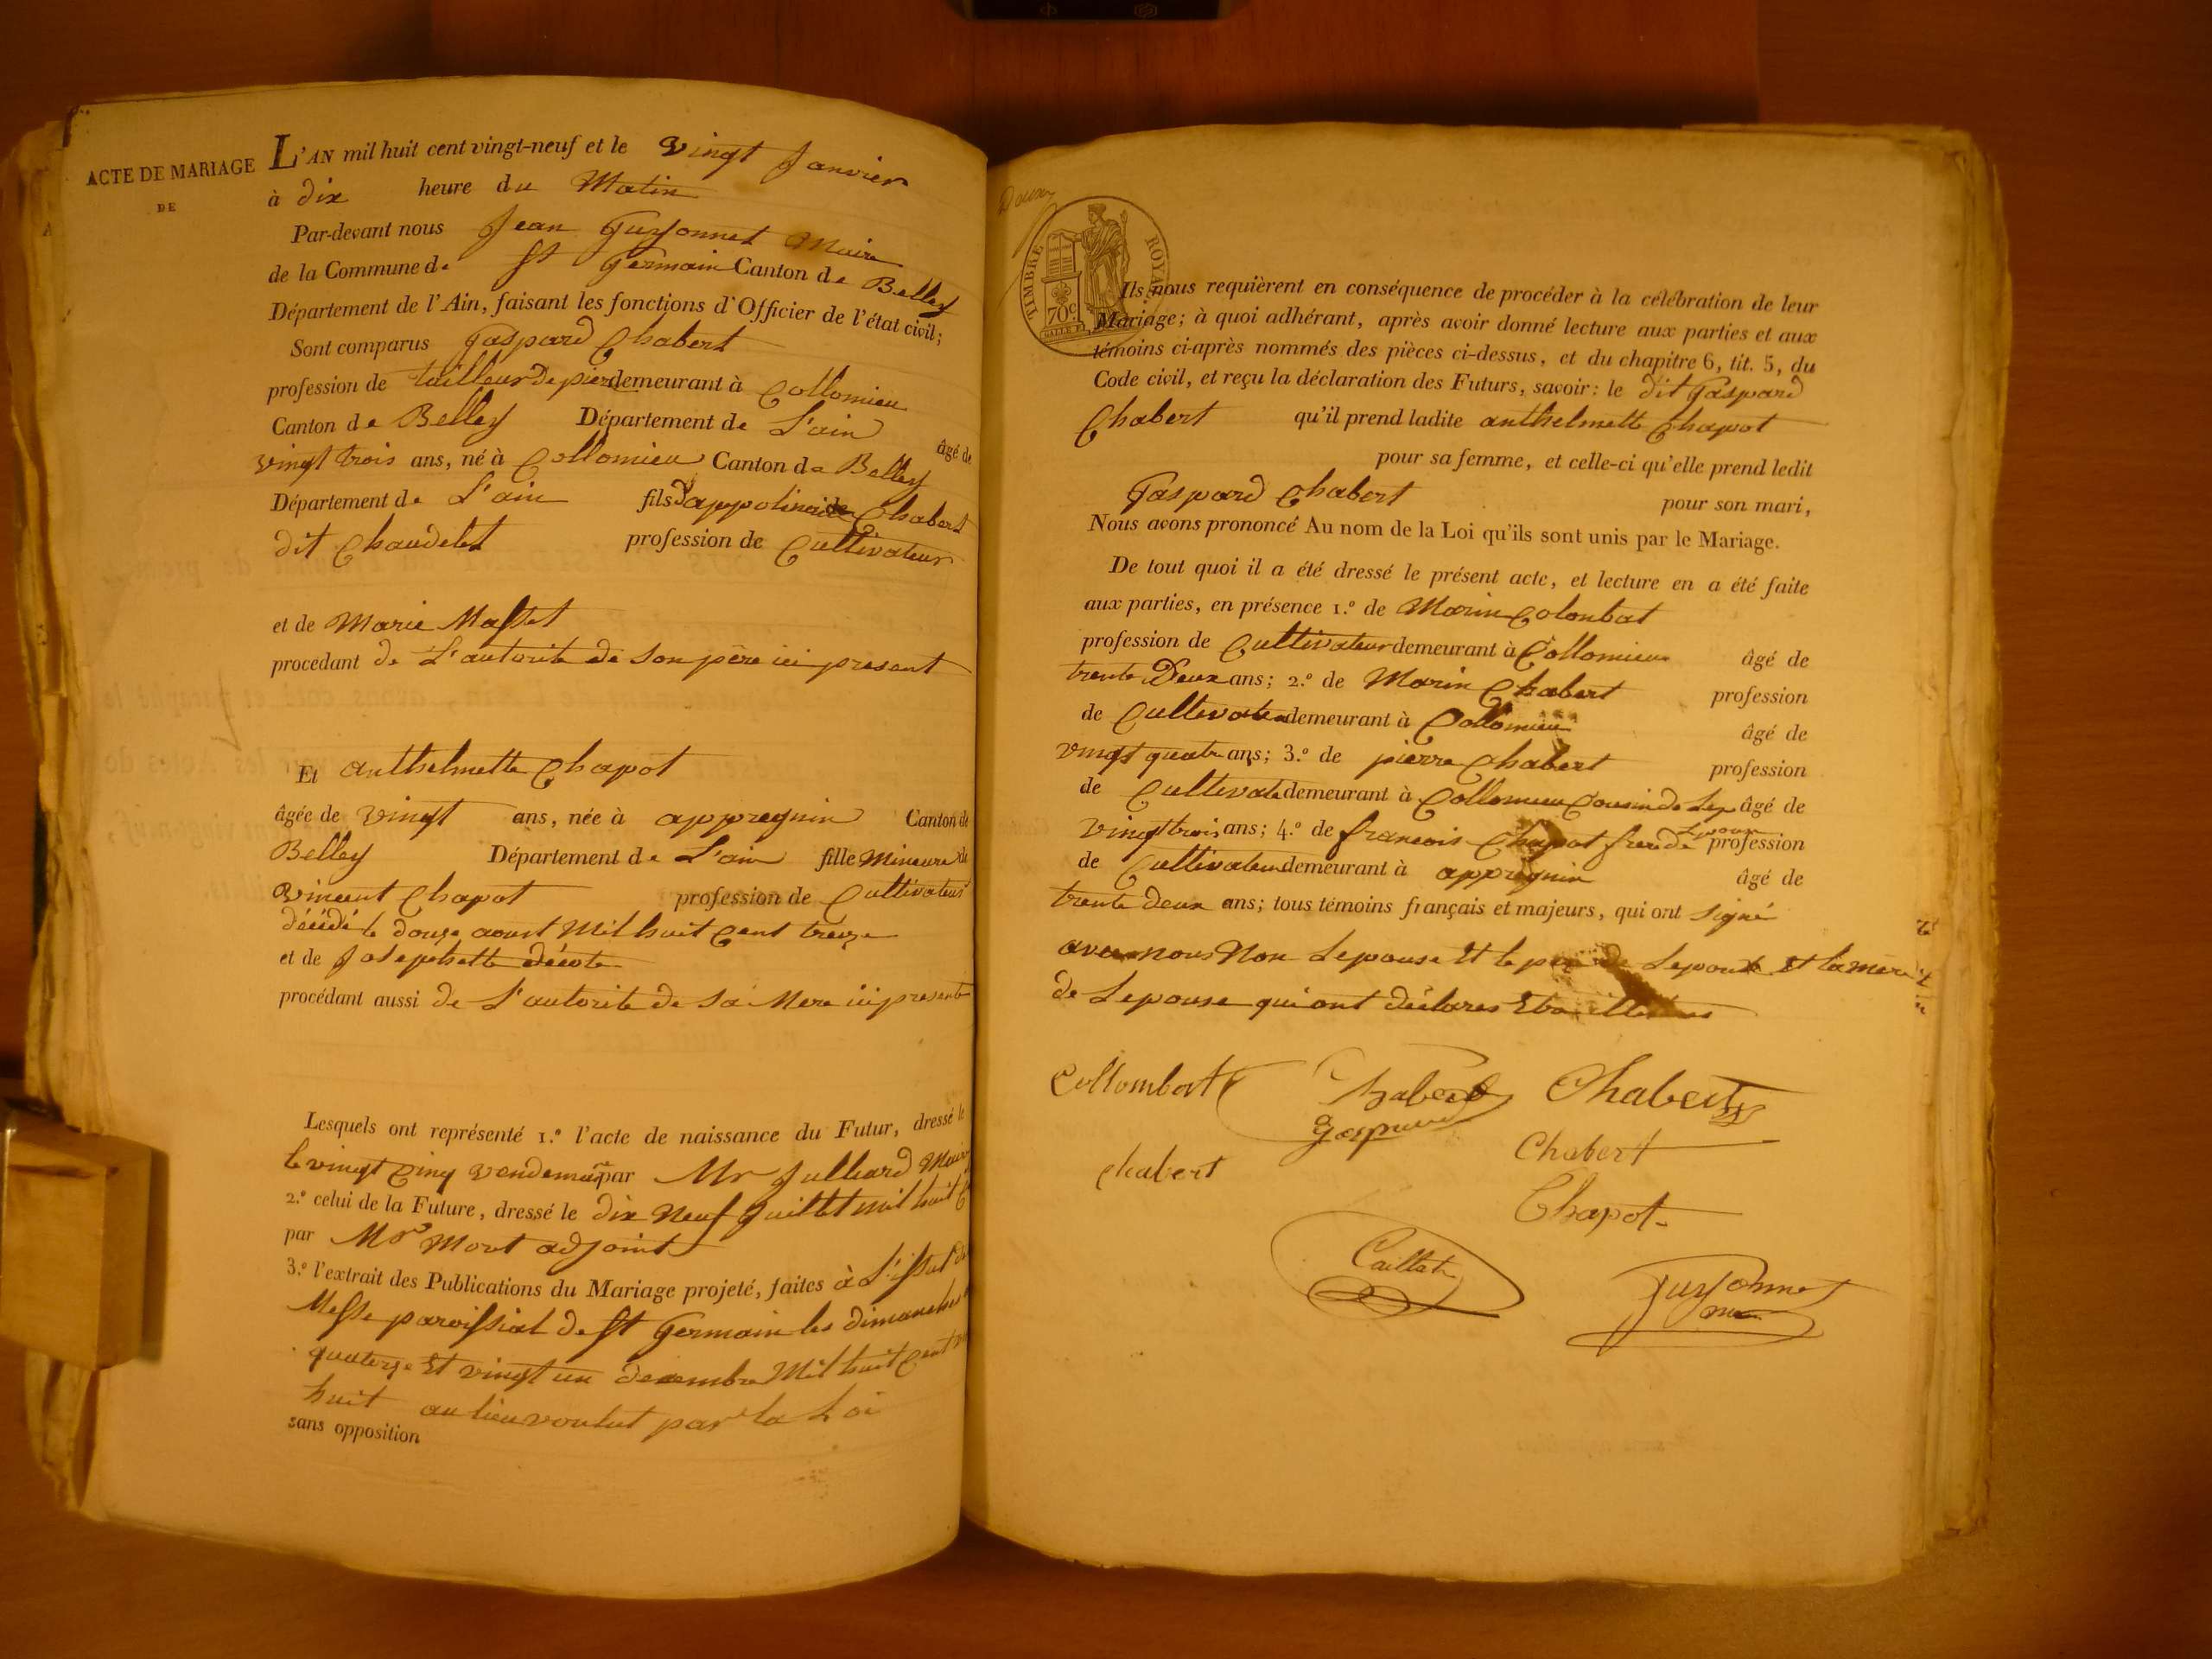 ACTE DE MARIAGE
DE
L'AN mil huit cent vingt-neuf et le vingt Janvier
à dix heure du Matin
Par-devant nous Jean Guyonnet Maire
de la Commune de St Germain Canton de Belley
Département de l'Ain, faisant les fonctions d'Officier de l'état civil;
Sont comparus Gaspard Chabert
profession de tailleur de pier demeurant à Collomieu
Canton de Belley Département de L'ain âgé de
vingt trois ans, né à Collomieu Canton de Belley
Département de L'ain fils D'appolinaire Chabert
dit Chaudelet profession de Cultivateur
et de Marie Masset
procédant de L'autorite de son père ici present
Et anthelmette Chapot
âgée de vingt ans, née à appregnin Canton de
Belley Département de L'ain fille Mineure de
vincent Chapot profession de Cultivateur
décédé le douze aoust Mil huit Cent treize
et de Josephette décote
procédant aussi de L'autorite de sa Mere ici presente
Lesquels ont représenté 1.º l'acte de naissance du Futur, dressé le
le vingt Cinq vendemre par Mr Julliard Maire
2.º celui de la Future, dressé le dix Neuf Juillet mil huit
par Mr Mort adjoint
3.º l'extrait des Publications du Mariage projeté, faites à L'issut de
Messe paroissial de St Germain les dimanches
quatorze Et vingt un decembre Mil huit Cent
huit au lieu voulut par la Loi
sans opposition
TIMBRE ROYAL
70 c.
Ils nous requièrent en conséquence de procéder à la célébration de leur
Mariage; à quoi adhérant, après avoir donné lecture aux parties et aux
témoins ci-après nommés des pièces ci-dessus, et du chapitre 6, tit. 5, du
Code civil, et reçu la déclaration des Futurs, savoir: le dit Gaspard
Chabert qu'il prend ladite anthelmette Chapot
pour sa femme, et celle-ci qu'elle prend ledit
Gaspard Chabert pour son mari,
Nous avons prononcé Au nom de la Loi qu'ils sont unis par le Mariage.
De tout quoi il a été dressé le présent acte, et lecture en a été faite
aux parties, en présence 1.º de Marin Colonbat
profession de Cultivateur demeurant à Collomieu âgé de
trente Deux ans; 2.º de Marin Chabert profession
de Cultivateu demeurant à Collomieu âgé de
vingt quatre ans; 3.º de pierre Chabert profession
de Cultivate demeurant à Collomieu Cousin de Lep âgé de
vingt trois ans; 4.º de francois Chapot frere de Lepouse profession
de Cultivateu demeurant à appregnin âgé de
trente deux ans; tous témoins français et majeurs, qui ont signé
avec nous Non Lepouse Et le pere de Lepoux Et la mere
de Lepouse qui ont déclares Etre illetres
Collombat Chabert Chabert
Gaspard
Chabert
Chabert
Chapot
Caillat
Guyonnet
mre